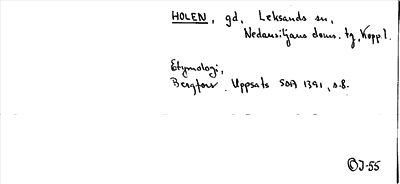 HOLEN, gd, Leksands sn,
Nedansiljans doms. tg, Kopp.l.
Etymologi,
Bergfors, Uppsats SOÄ 1391, s.8.
J-55